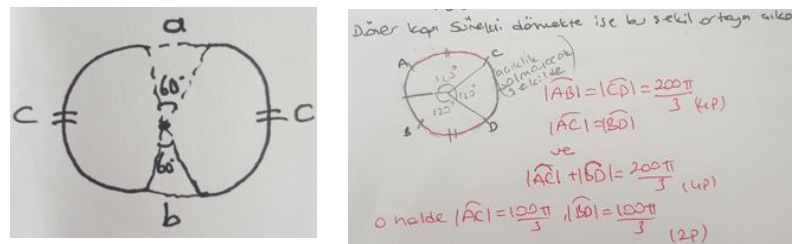 a
60°
C
C
60°
b
Döner kapı sürekli dönmekte ise bu şekil ortaya
A
C
120°
120°
120°
B
D
açıklık
olmayacak
şekilde
|AB| = |CD| = 200π/3 (4p)
|AC| = |BD|
ve
|AC| + |BD| = 200π/3 (4p)
O halde |AC| = 100π/3, |BD| = 100π/3
(2p)